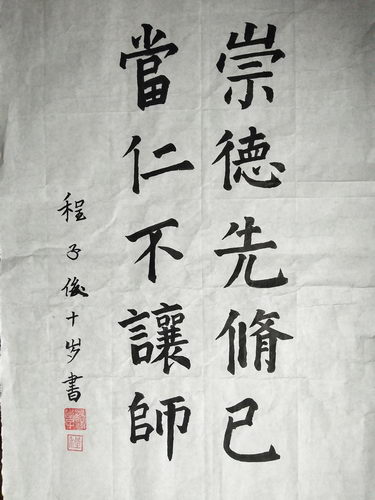 崇德先脩己
當仁不讓師
程子俊十岁書